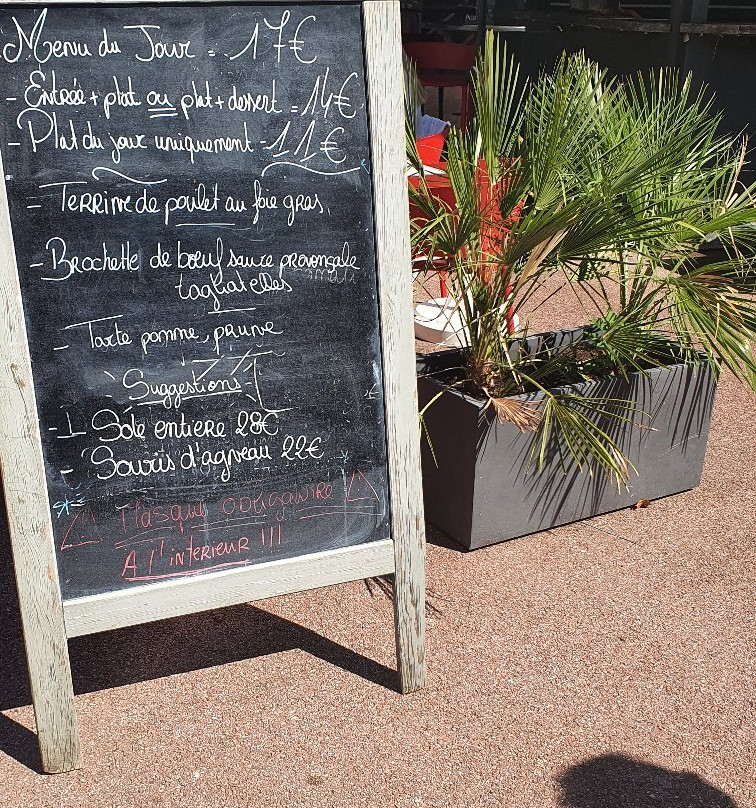 Menu du Jour = 17€
- Entrée + plat ou plat + dessert = 14€
- Plat du jour uniquement - 11€
- Terrine de poulet au foie gras
- Brochette de bœuf sauce provençale
tagliatelles
- Tarte pomme, prune
Suggestions
- 1 Sole entiere 28€
- Souris d'agneau 22€
Masque obligatoire
A l'interieur !!!